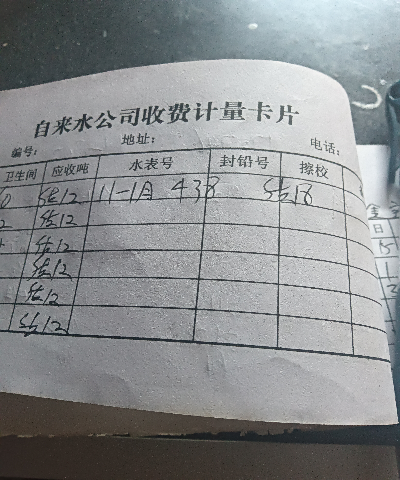 自来水公司收费计量卡片
编号: 地址: 电话:
卫生间 应收吨 水表号 封铅号 擦校
0 结12 11-1月 438 结18
2 结12
结12
结12
结12
结12